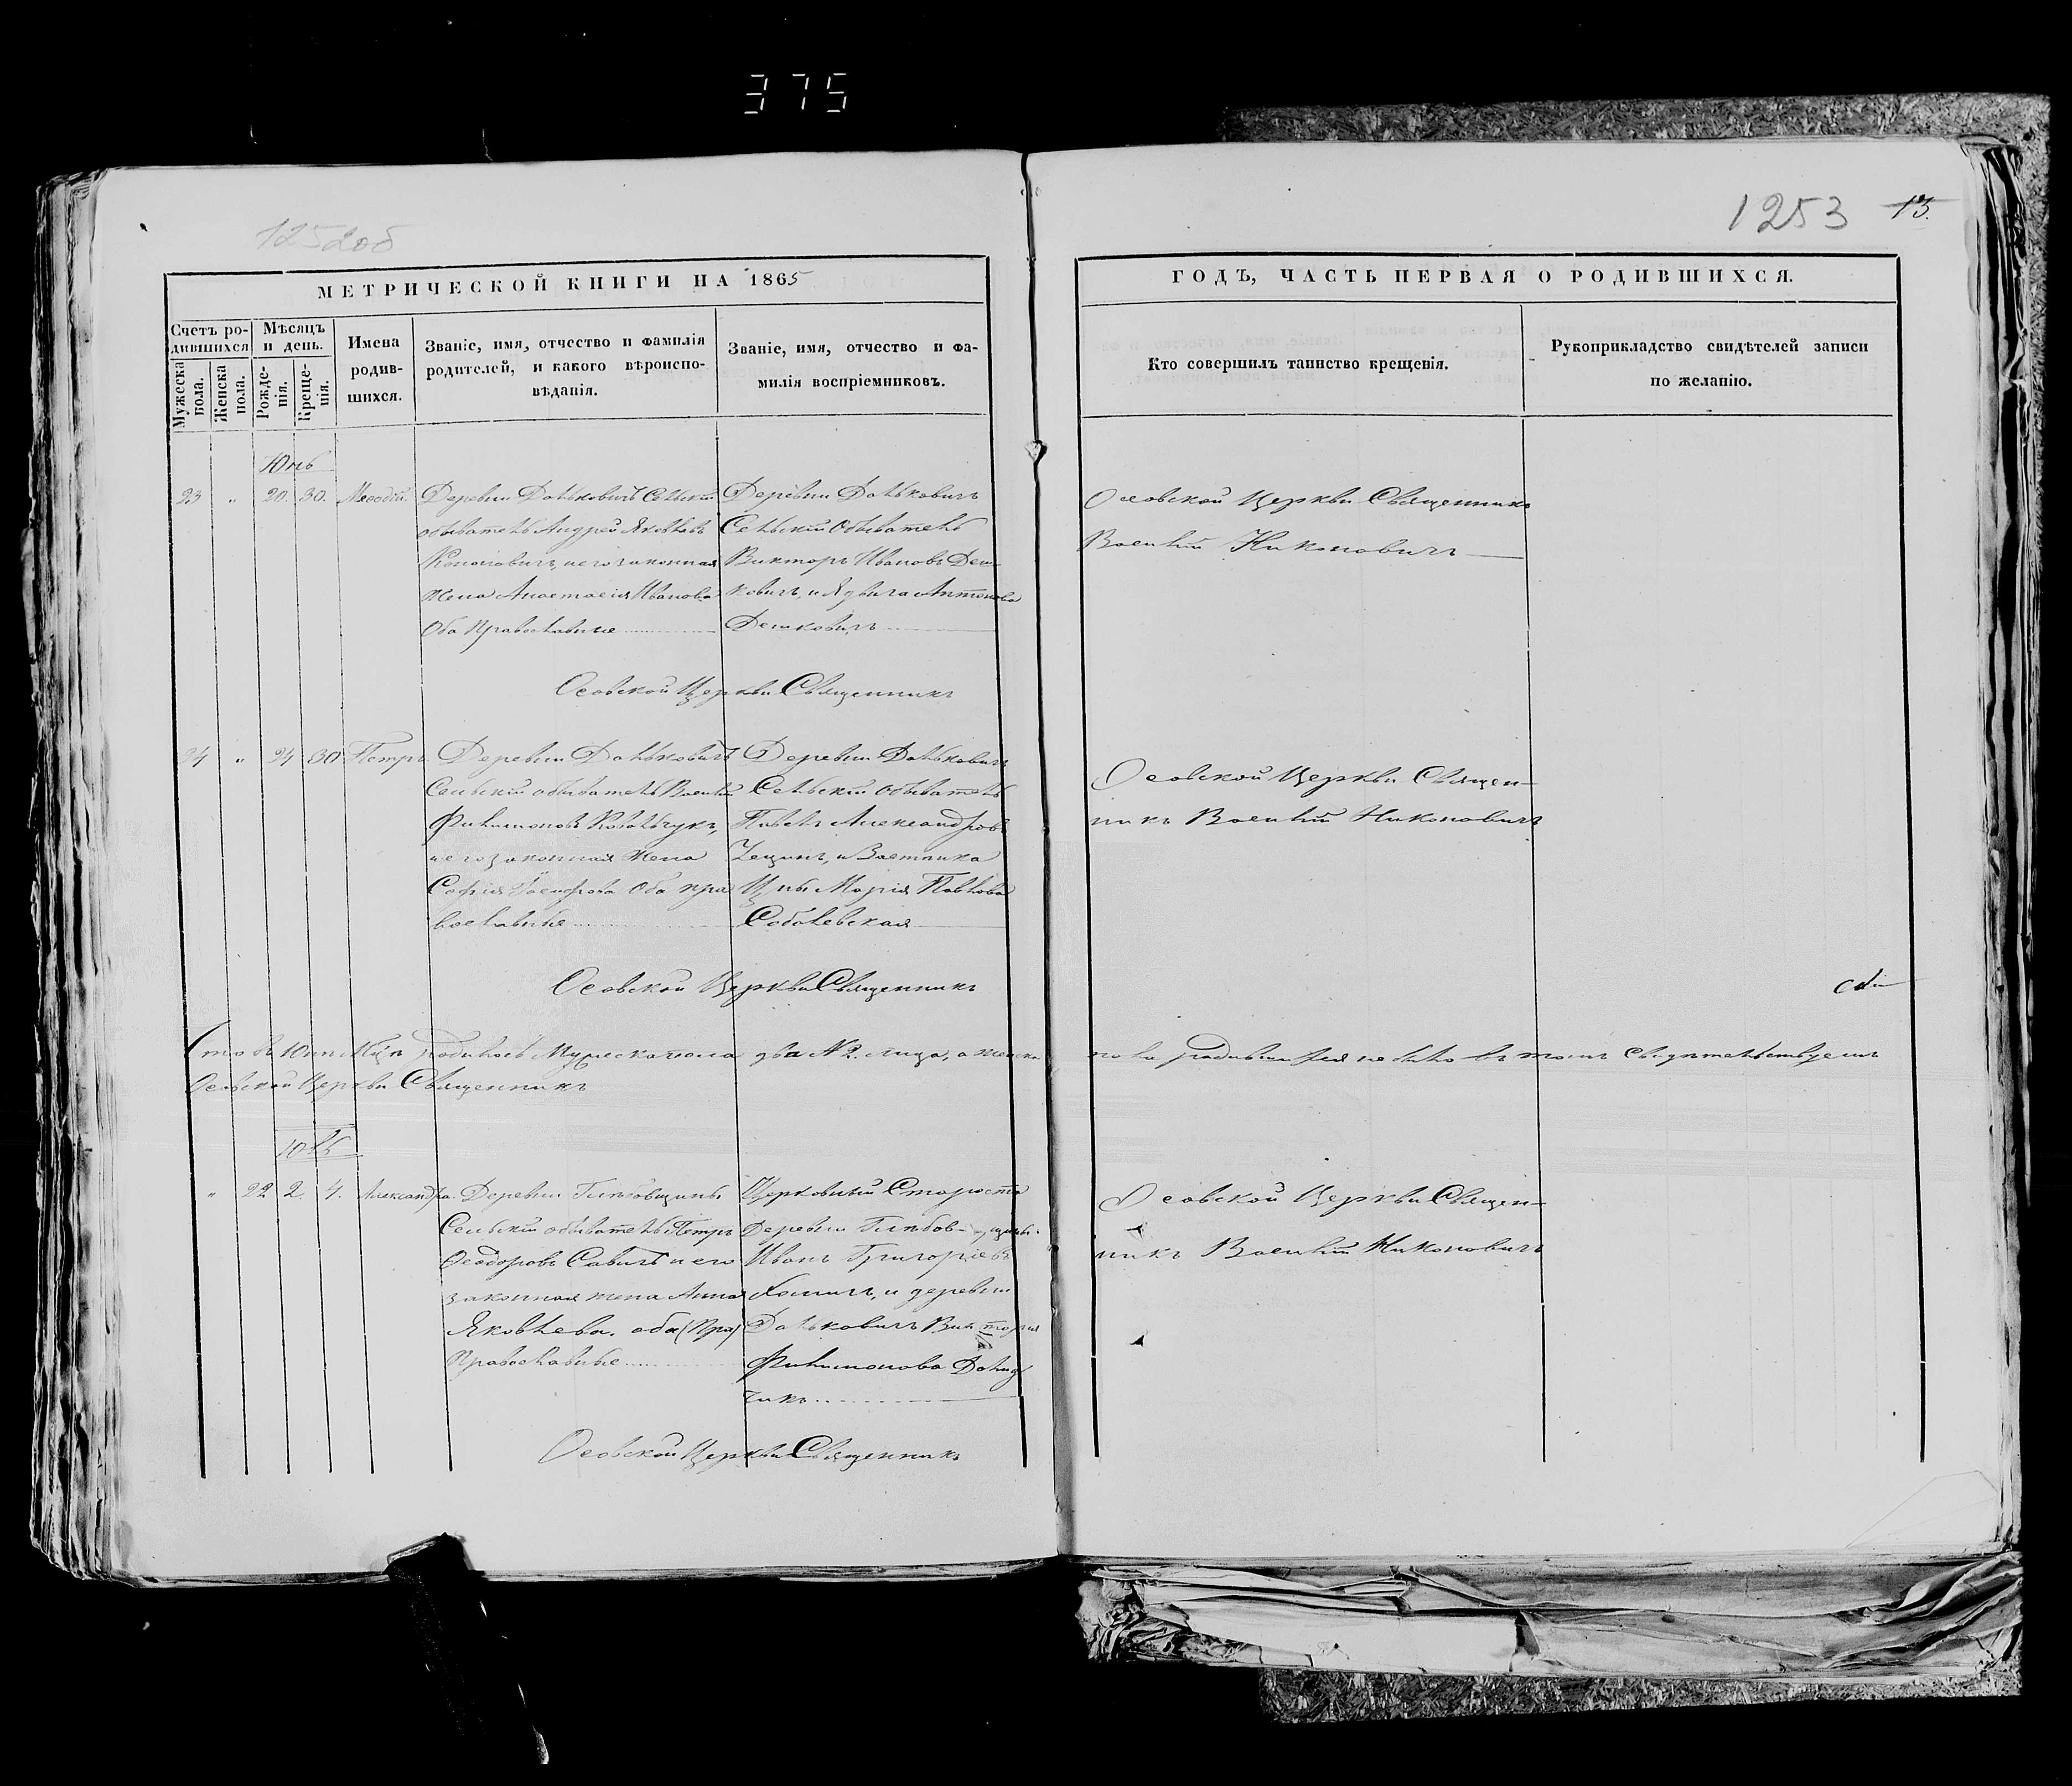 375
1252об
1253 13.
МЕТРИЧЕСКОЙ КНИГИ НА 1865
ГОДЪ, ЧАСТЬ ПЕРВАЯ О РОДИВШИХСЯ.
Счетъ ро-
дившихся
Мужеска
пола.
Женска
пола.
Мѣсяцъ
и день.
Рожде-
нія.
Креще-
нія.
Имена
родив-
шихся.
Званіе, имя, отчество и фамилія
родителей, и какого вѣроиспо-
вѣданія.
Званіе, имя, отчество и фа-
милія воспріемниковъ.
Кто совершилъ таинство крещенія.
Рукоприкладство свидѣтелей записи
по желанію.
Юнь
23 " 20. 30. Меѳодій.
Деревни Долькович Сельскій
обыватель Андрей Яковлевъ
и его законная
жена Анастасія Иванова
Оба Православные
Деревни Долькович
Сельскій Обыватель
Викторъ Ивановъ Деш-
ковичъ, и Ядвига Антонова
Дешковичъ
Осовской Церкви Священникъ
Василій Никоновичъ
Осовской Церкви Священникъ
24 " 24 30 Петръ.
Деревни Долькович
Сельскій обыватель Василій
Филимоновъ Ковальчукъ,
и его законная жена
Софія Іосифова Оба пра
вославные
Деревни Долькович
Сельскій обыватель
Павелъ Александровъ
и
Марія Павлова
Соболевская
Осовской Церкви Священ-
никъ Василій Никоновичъ
Осовской Церкви Священникъ
Что въ Юнѣ Мцѣ родилось Мужеска пола два № 2. лица, а женска
пола родившихся не было въ томъ свидѣтельствуемъ
Осовской Церкви Священникъ
Юль
" 22 2. 4. Александра.
Деревни Глѣбовщины
Сельскій обыватель Петръ
Ѳеодоровъ Савичъ и его
законная жена Анна
Яковлева. оба (Пра)
Православные
Церковный Староста
деревни Глѣбов-щины.
Иванъ Григоріевъ
Хомичъ, и деревни
Долькович Викторія
Филимонова
чикъ
Осовской Церкви Священ-
никъ Василій Никоновичъ
Осовской Церкви Священникъ